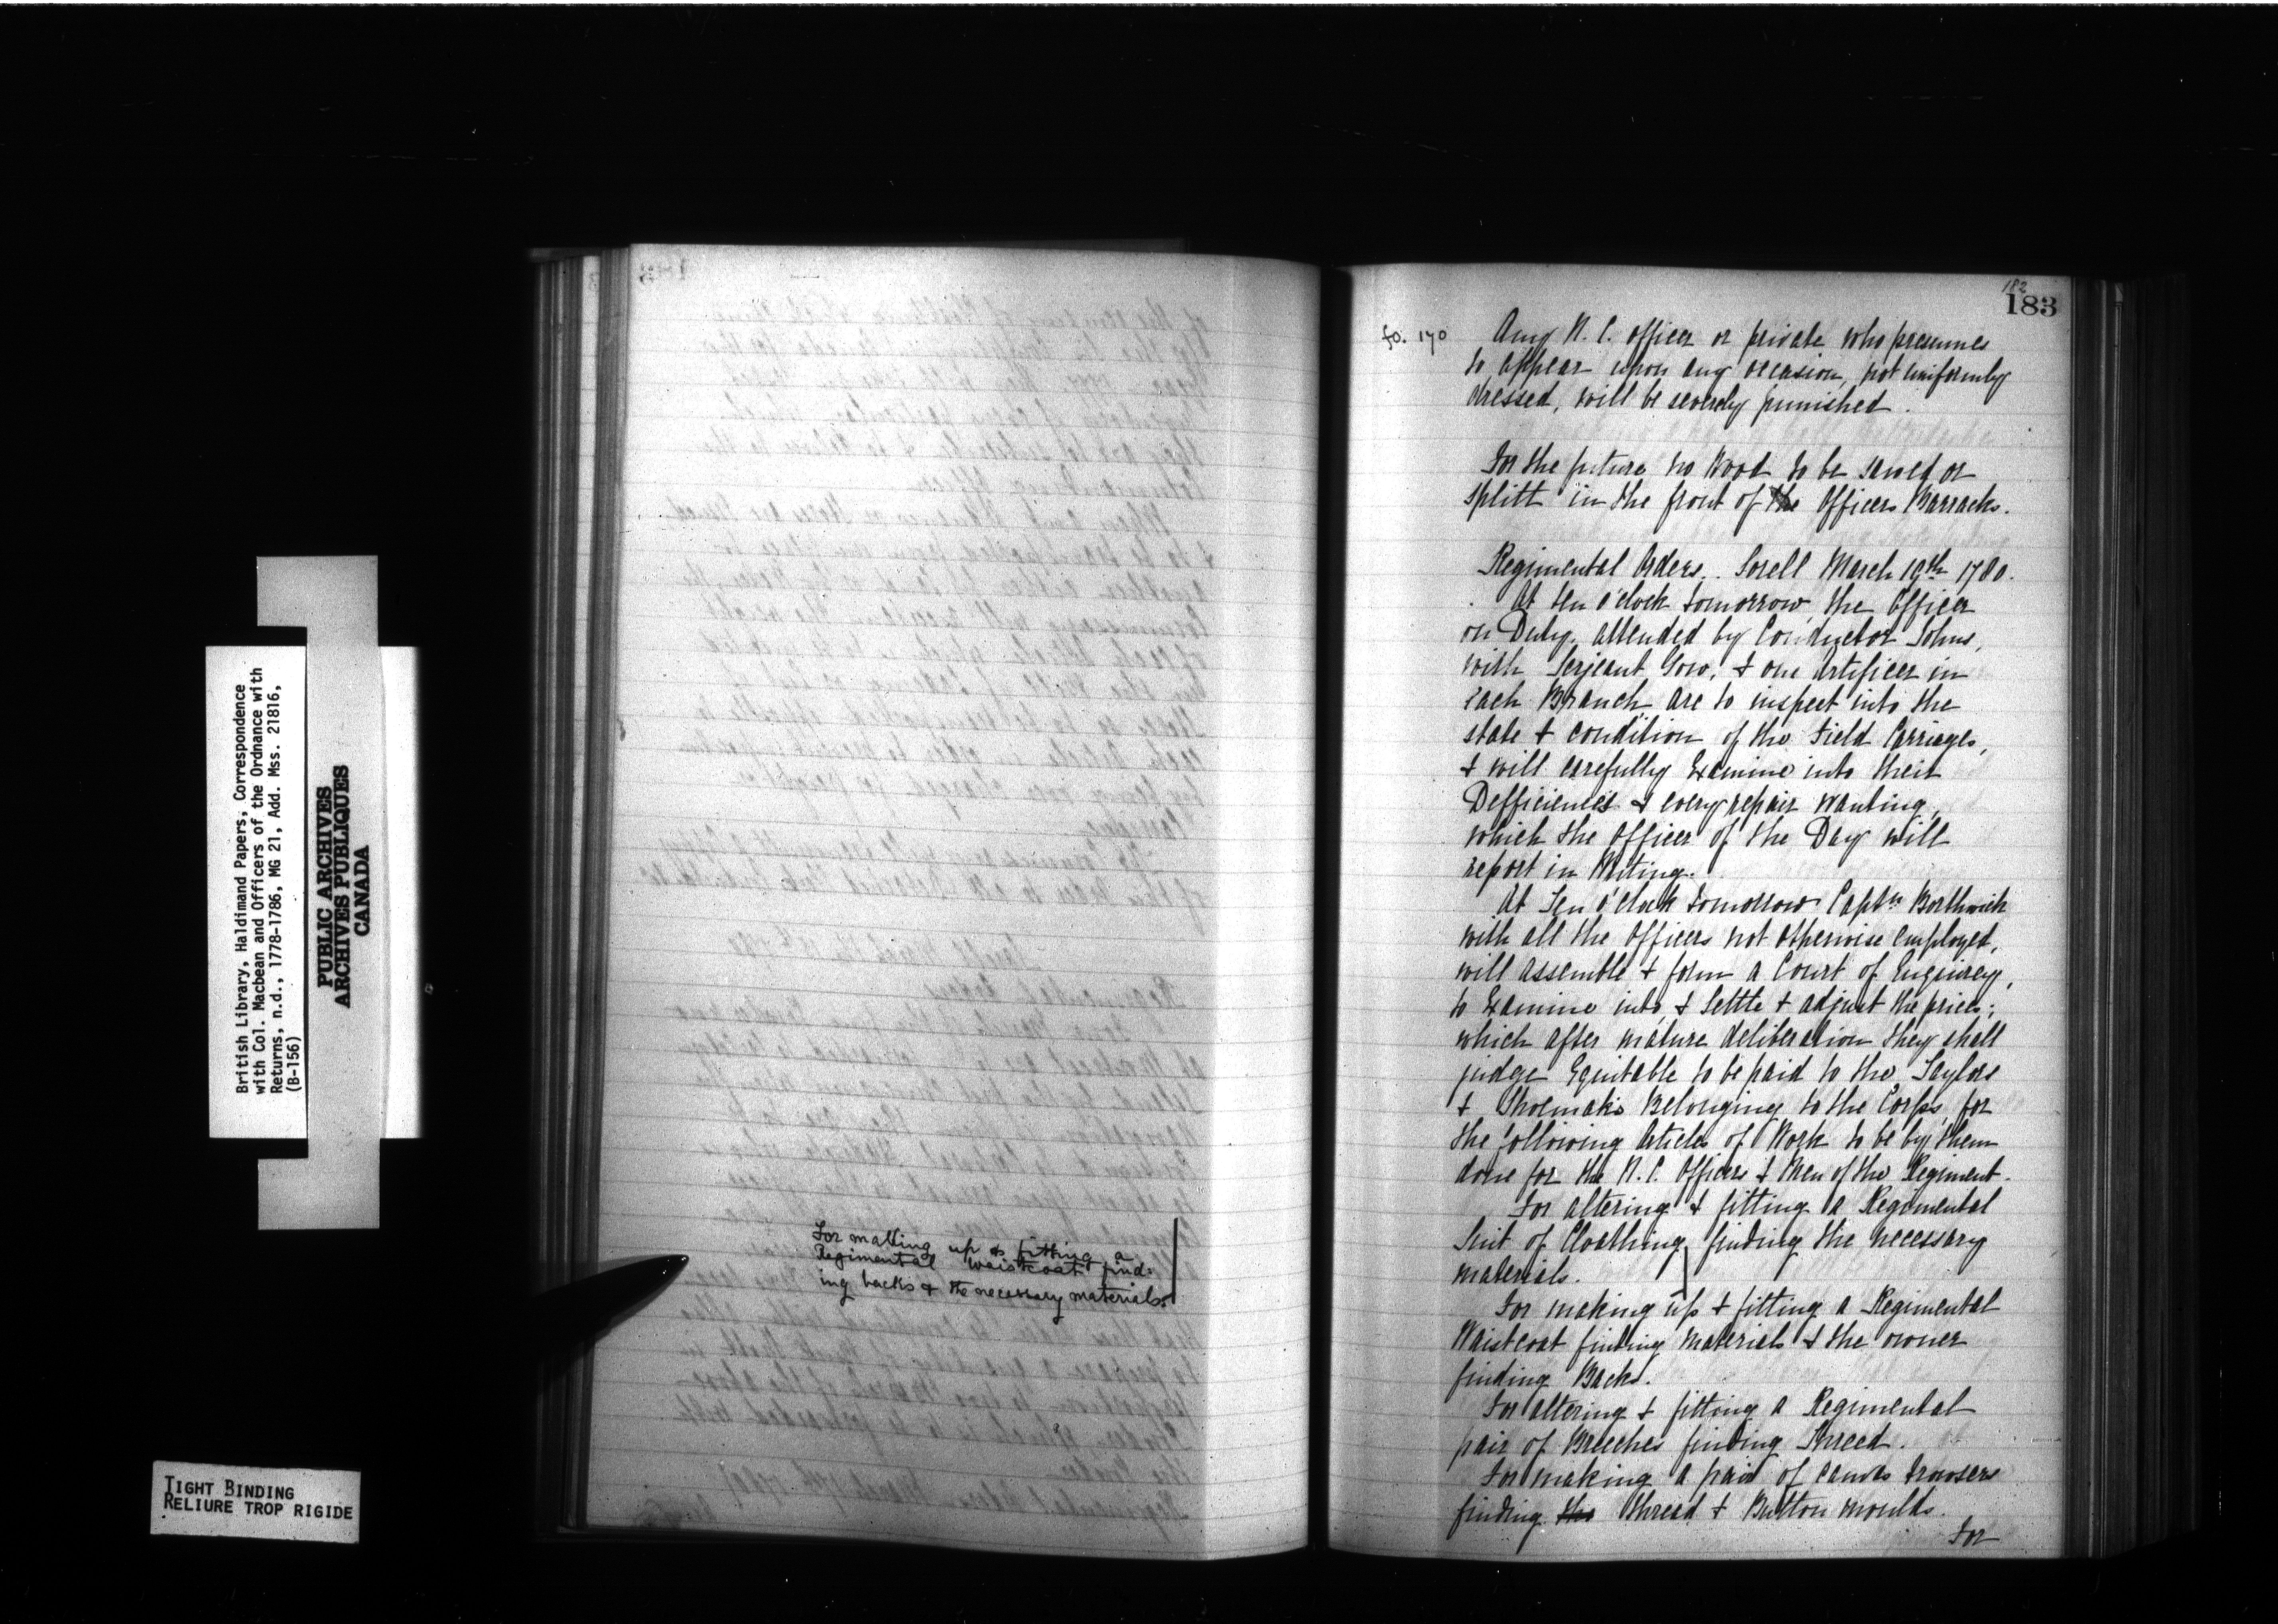 British Library, Haldimand Papers, Correspondence
with Col. Macbean and Officers of the Ordnance with
Returns, n.d., 1778-1786, MG 21, Add. Mss. 21816,
(B-156)
PUBLIC ARCHIVES
ARCHIVES PUBLIQUES
CANADA
TIGHT BINDING
RELIURE TROP RIGIDE
For making up & fitting a
Regimental Waistcoat find=
ing backs & the necessary materials.
182
183
fo. 170
Any N. C. officer or private who presumes
to appear upon any occasion, not uniformly
dressed, will be severely punished.
For the future no Wood to be sawed or
splitt in the front of the Officers Barracks.
Regimental Orders. Sorell March 19th 1780.
At ten o'clock tomorrow, the Officer
on Duty, attended by Conductor Johns,
with Serjeant Gow, & one Artificer in
each Branch, are to inspect into the
state & condition of the Field Carriages,
& will carefully Examine into their
Defficiencies & every repair wanting,
which the Officer of the Day will
report in Writing.
At Ten o'clock tomorrow Captn Borthwick
with all the Officers not otherwise employed,
will assemble & form a Court of Enquirey,
to Examine into, & Settle & adjust the prices;
which after mature deliberation they shall
judge Equitable to be paid to the Taylors
& Shoemaks Belonging to the Corps, for
the following Articles of Work to be by them
done for the N. C. Officers & Men of the Regiment.
For altering & fitting a Regimental
Suit of Cloathing finding the necessary
materials.
For making up & fitting a Regimental
Waistcoat finding materials & the owner
finding Backs.
For altering & fitting a Regimental
pair of Breeches finding Thread.
For making a pair of canvas trowsers
finding the thread & Button moulds.
For